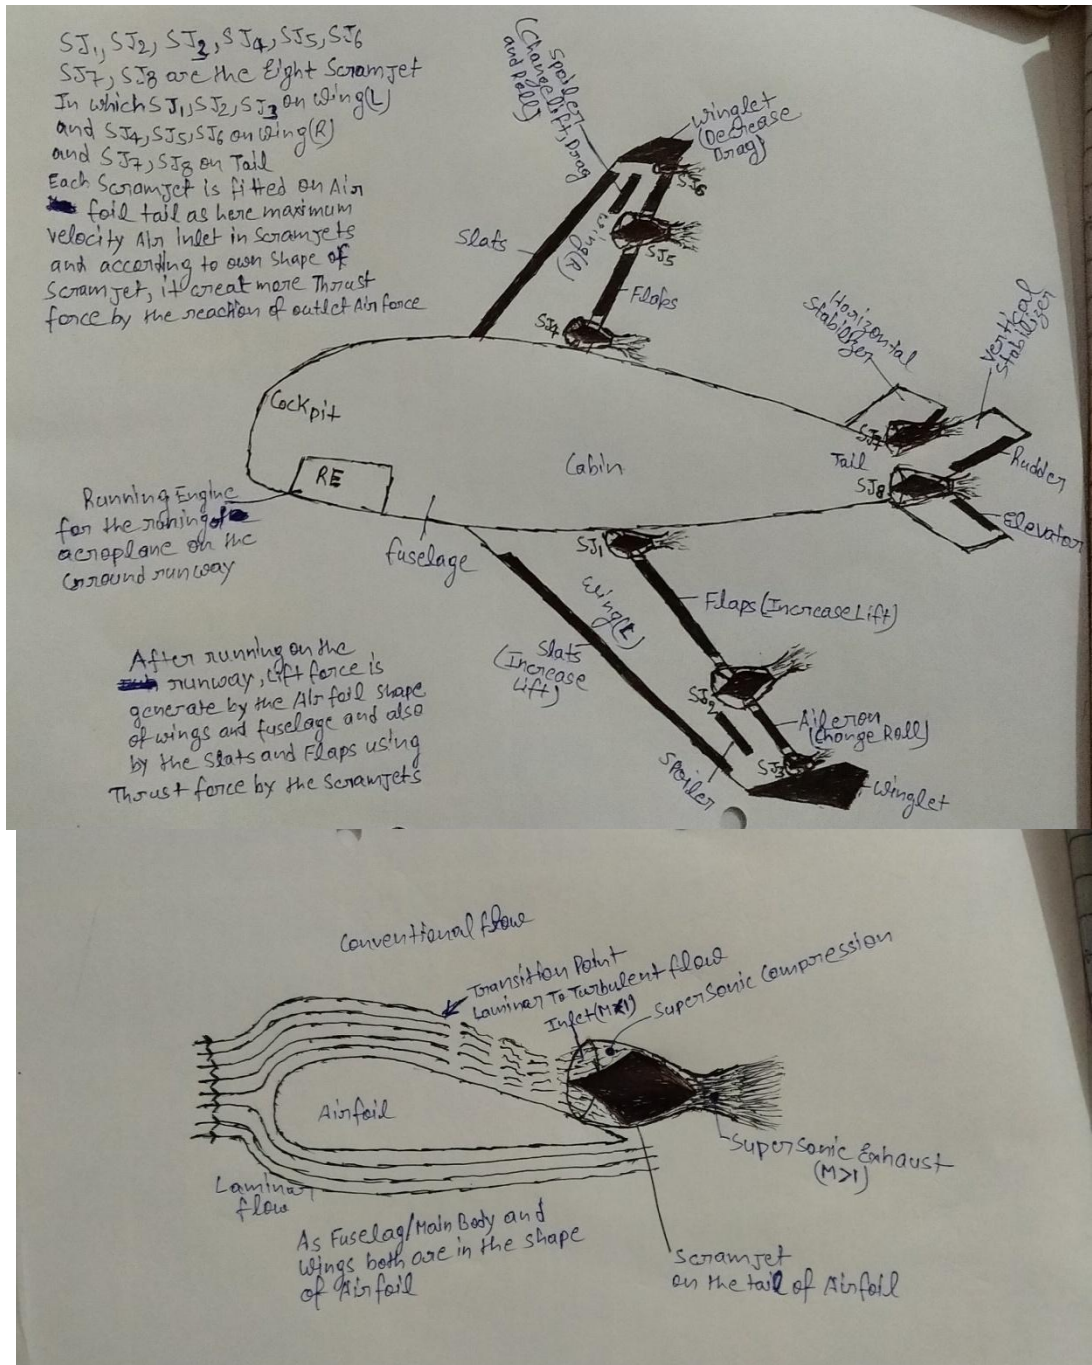 SJ1, SJ2, SJ3, SJ4, SJ5, SJ6
SJ7, SJ8 are the Eight Scramjet
In which SJ1, SJ2, SJ3 on wing(L)
and SJ4, SJ5, SJ6 on wing(R)
and SJ7, SJ8 on Tail
Each Scramjet is fitted on Air
foil tail as here maximum
velocity Air inlet in Scramjets
and according to own shape of
Scramjet, it creat more Thrust
force by the reaction of outlet Air force
Spoiler
(Change lift, Drag
and Roll)
Winglet
(Decrease
Drag)
SJ6
Slats
Wing(R)
SJ5
Flaps
SJ4
Horizontal
Stabilizer
Vertical
Stabilizer
Cockpit
SJ7
Tail
Rudder
RE
Cabin
SJ8
Elevator
Running Engine
for the
aeroplane on the
Ground runway
fuselage
SJ1
Wing(L)
Flaps (Increase Lift)
Slats
(Increase
Lift)
SJ2
Aileron
(Change Roll)
Spoiler
SJ3
Winglet
After running on the
runway, Lift force is
generate by the Air foil shape
of wings and fuselage and also
by the Slats and Flaps using
Thrust force by the Scramjets
Conventional flow
Transition Point
Laminar To Turbulent flow
Supersonic Compression
Airfoil
Supersonic Exhaust
(M>1)
Laminar
flow
As Fuselag/Main Body and
Wings both are in the shape
of Airfoil
Scramjet
on the tail of Airfoil